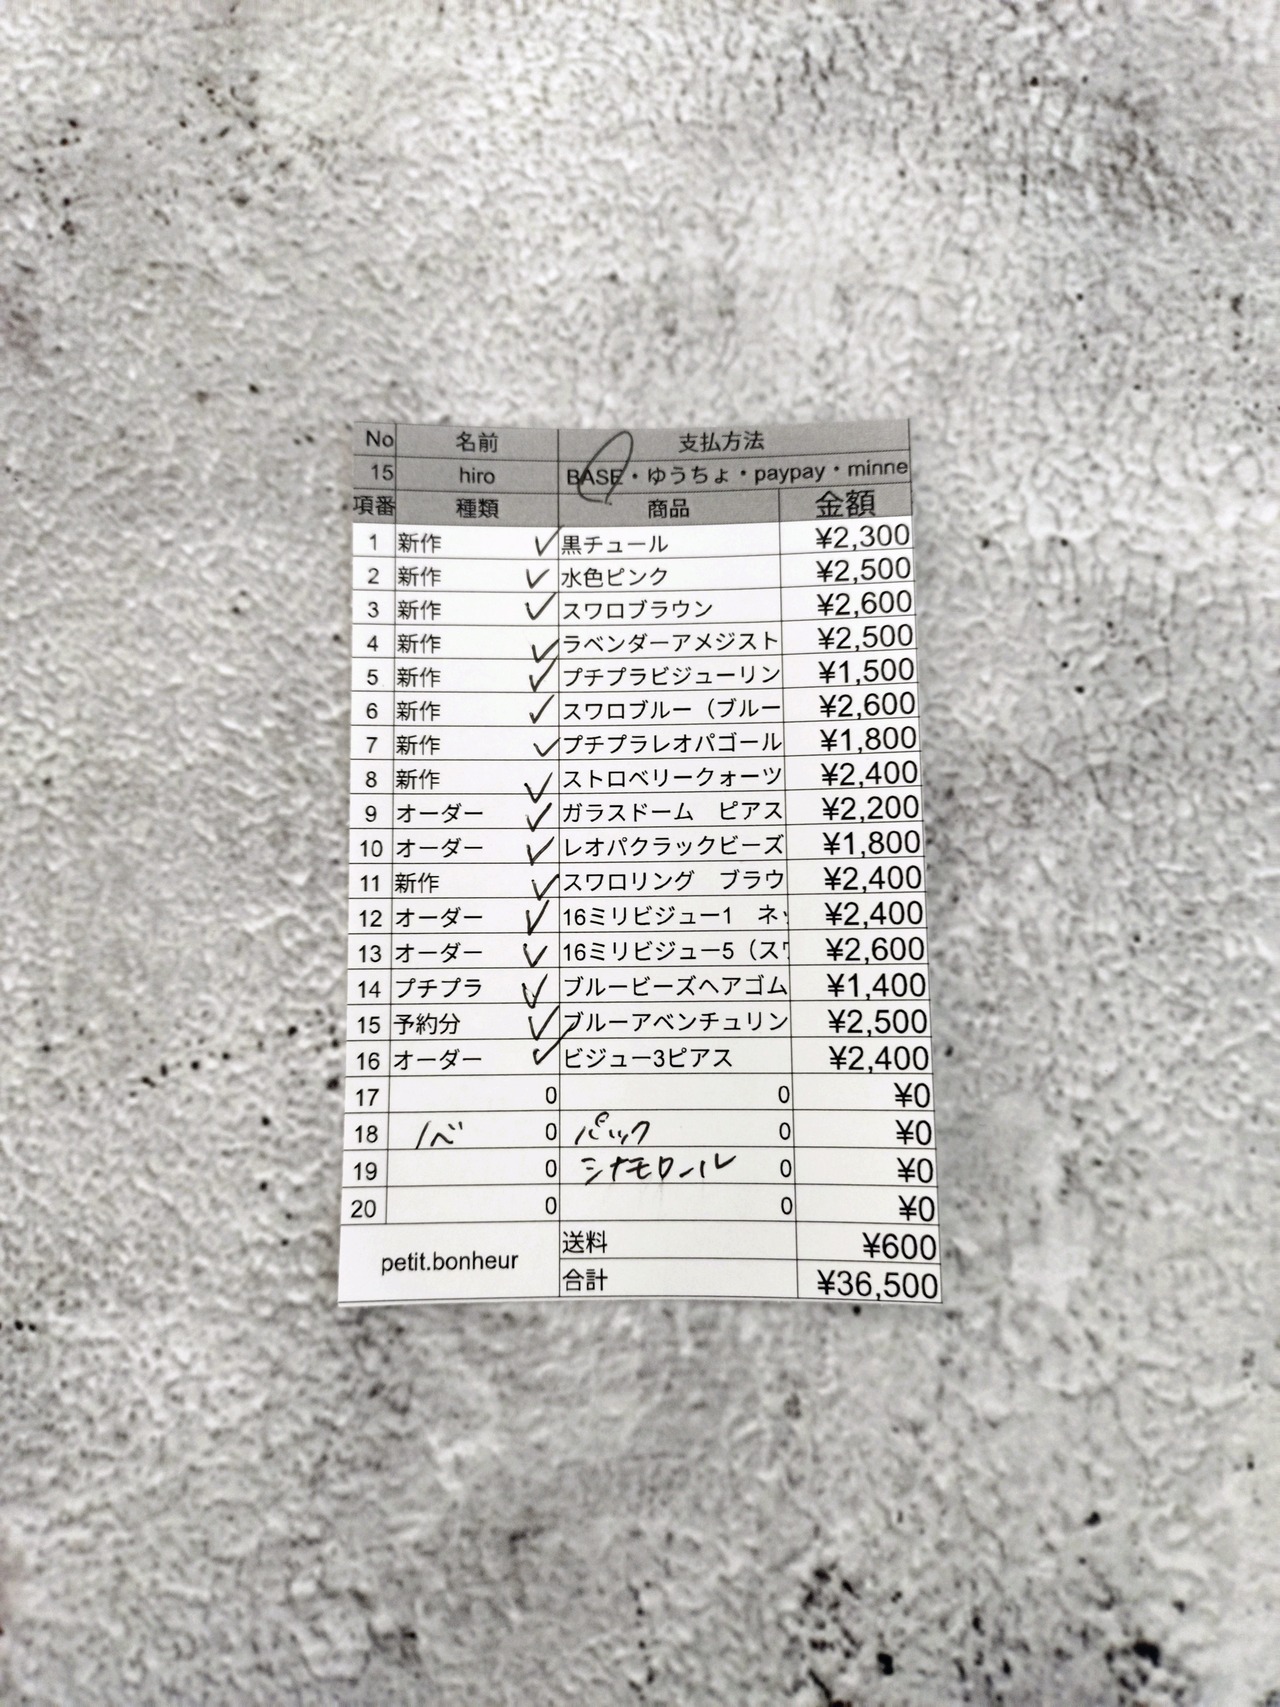 No 名前 支払方法
15 hiro BASE・ゆうちょ・paypay・minne
項番 種類 商品 金額
1 新作 ✓ 黒チュール ¥2,300
2 新作 ✓ 水色ピンク ¥2,500
3 新作 ✓ スワロブラウン ¥2,600
4 新作 ✓ ラベンダーアメジスト ¥2,500
5 新作 ✓ プチプラビジューリン ¥1,500
6 新作 ✓ スワロブルー（ブルー ¥2,600
7 新作 ✓ プチプラレオパゴール ¥1,800
8 新作 ✓ ストロベリークォーツ ¥2,400
9 オーダー ✓ ガラスドーム　ピアス ¥2,200
10 オーダー ✓ レオパクラックビーズ ¥1,800
11 新作 ✓ スワロリング　ブラウ ¥2,400
12 オーダー ✓ 16ミリビジュー1　ネッ ¥2,400
13 オーダー ✓ 16ミリビジュー5（スワ ¥2,600
14 プチプラ ✓ ブルービーズヘアゴム ¥1,400
15 予約分 ✓ ブルーアベンチュリン ¥2,500
16 オーダー ✓ ビジュー3ピアス ¥2,400
17 0 0 ¥0
18 ノベ 0 パック 0 ¥0
19 0 シナモロール 0 ¥0
20 0 0 ¥0
petit.bonheur
送料 ¥600
合計 ¥36,500